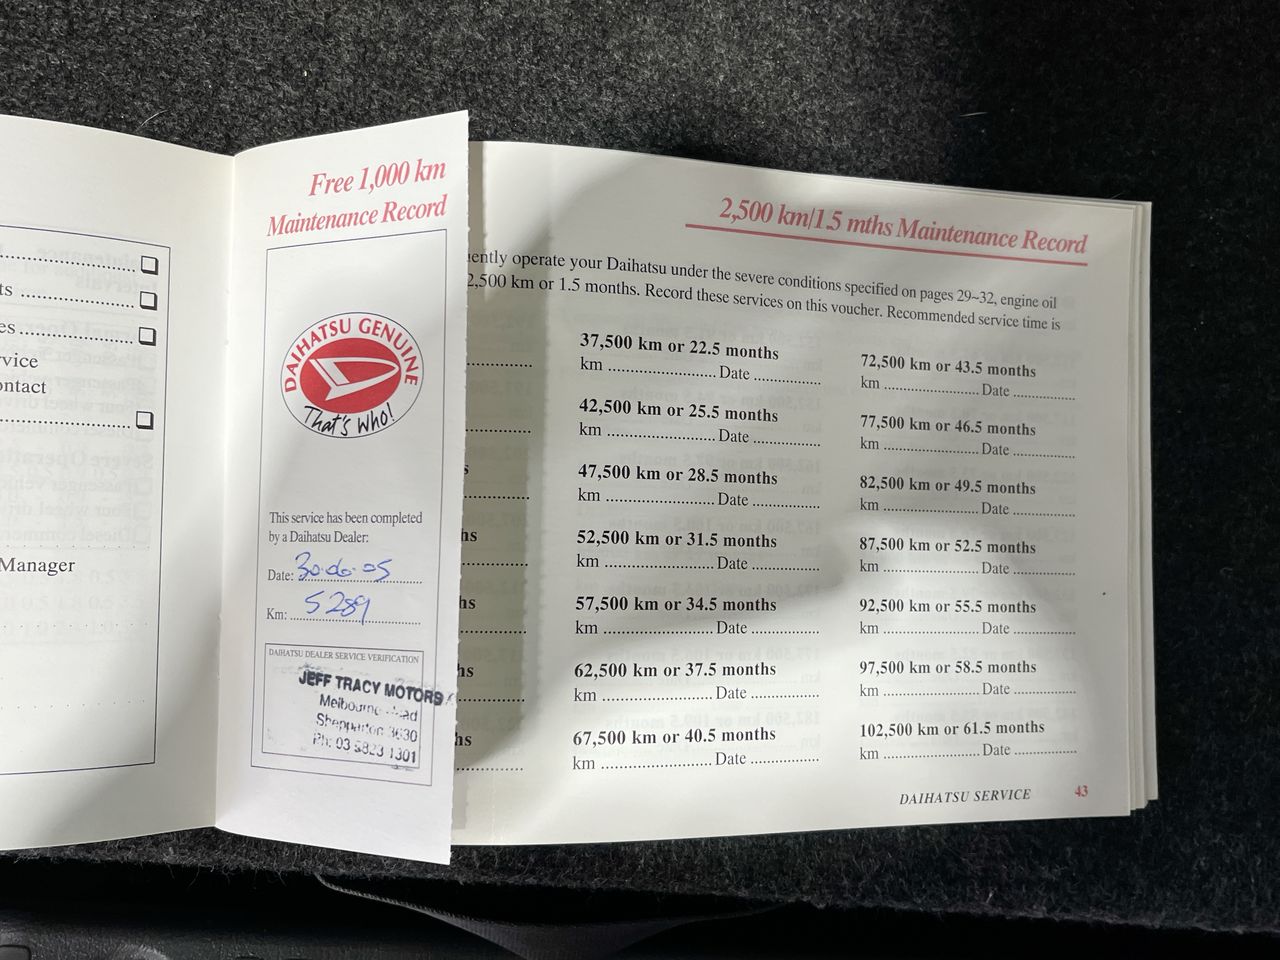 ts
es
vice
ontact
Manager
Free 1,000 km
Maintenance Record
DAIHATSU GENUINE
That's Who!
This service has been completed
by a Daihatsu Dealer:
Date: 30·06·05
Km: 5289
DAIHATSU DEALER SERVICE VERIFICATION
JEFF TRACY MOTORS
Melbourne Road
Shepparton 3630
Ph: 03 5823 1301
2,500 km/1.5 mths Maintenance Record
uently operate your Daihatsu under the severe conditions specified on pages 29~32, engine oil
2,500 km or 1.5 months. Record these services on this voucher. Recommended service time is
s
hs
hs
hs
hs
37,500 km or 22.5 months
km ........................ Date ...............
42,500 km or 25.5 months
km ........................ Date ...............
47,500 km or 28.5 months
km ........................ Date ...............
52,500 km or 31.5 months
km ........................ Date ...............
57,500 km or 34.5 months
km ........................ Date ...............
62,500 km or 37.5 months
km ........................ Date ...............
67,500 km or 40.5 months
km ........................ Date ...............
72,500 km or 43.5 months
km ..................... Date ..............
77,500 km or 46.5 months
km ..................... Date ..............
82,500 km or 49.5 months
km ..................... Date ..............
87,500 km or 52.5 months
km ..................... Date ..............
92,500 km or 55.5 months
km ..................... Date ..............
97,500 km or 58.5 months
km ..................... Date ..............
102,500 km or 61.5 months
km ..................... Date ..............
DAIHATSU SERVICE 43